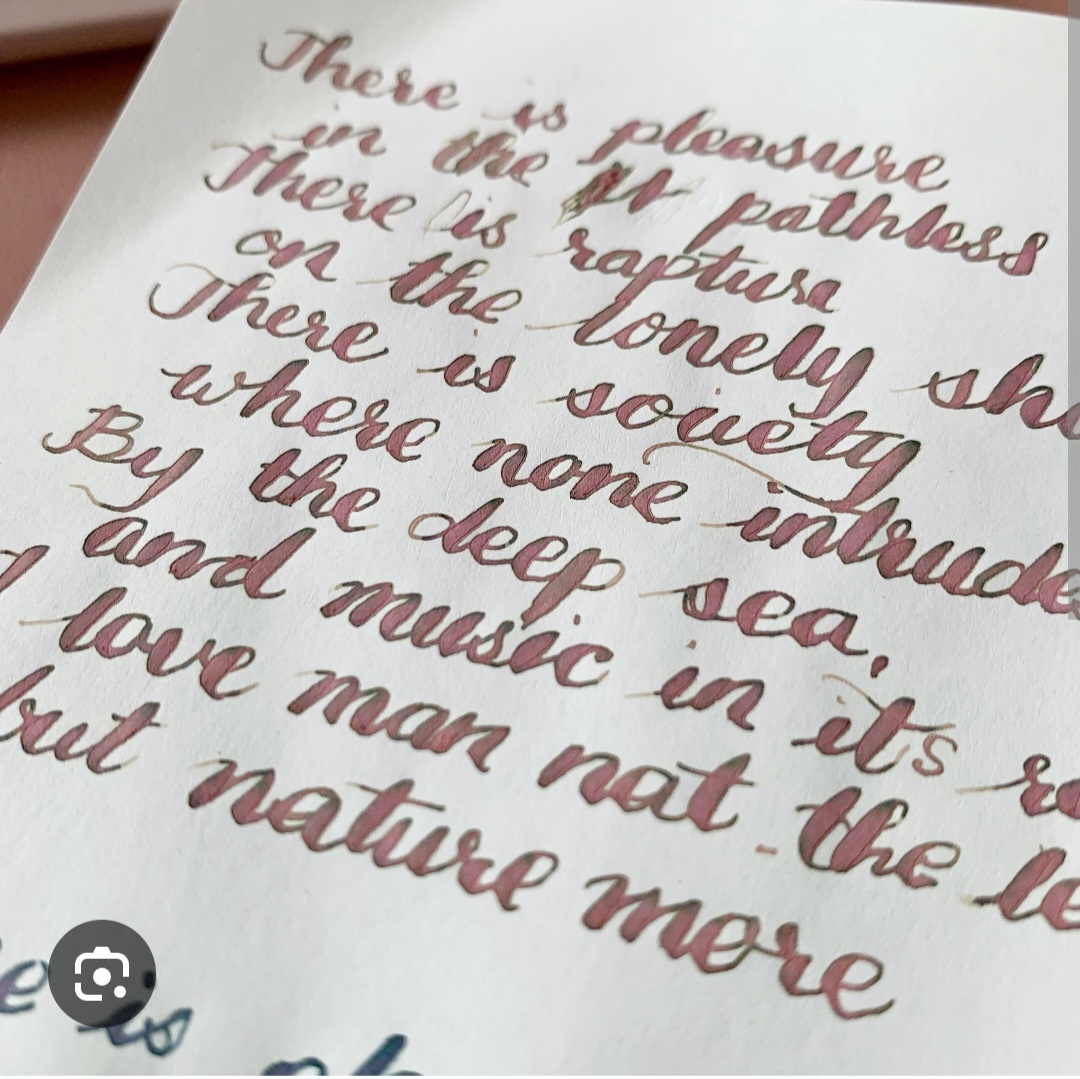 There is pleasure
in the pathless
There is rapture
on the lonely sho
There is society
where none intrude
By the deep sea,
and music in it's ro
I love man nat the le
but nature more
e is pl